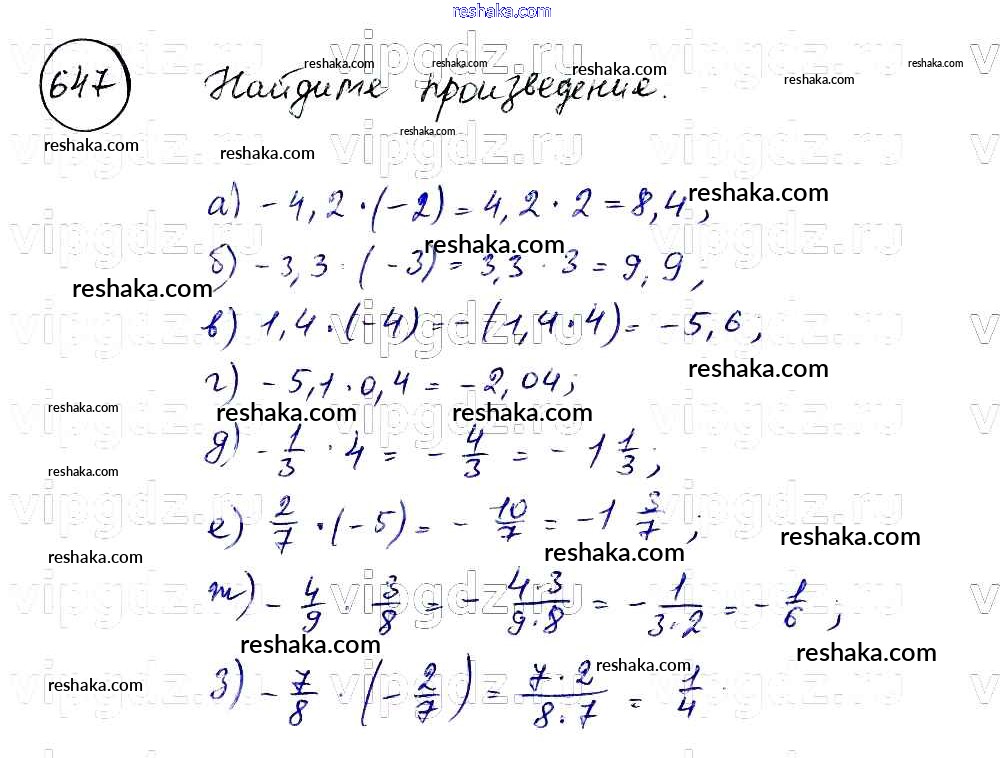 reshaka.com
647 Найдите произведение.
а) - 4,2 · (-2) = 4,2 · 2 = 8,4;
б) - 3,3 · (-3) = 3,3 · 3 = 9,9;
в) 1,4 · (-4) = -(1,4 · 4) = -5,6;
г) - 5,1 · 0,4 = -2,04;
д) - 1/3 · 4 = - 4/3 = - 1 1/3;
е) 2/7 · (-5) = - 10/7 = -1 3/7;
ж) - 4/9 · 3/8 = - 4·3/9·8 = - 1/3·2 = - 1/6;
з) - 7/8 · (- 2/7) = 7·2/8·7 = 1/4